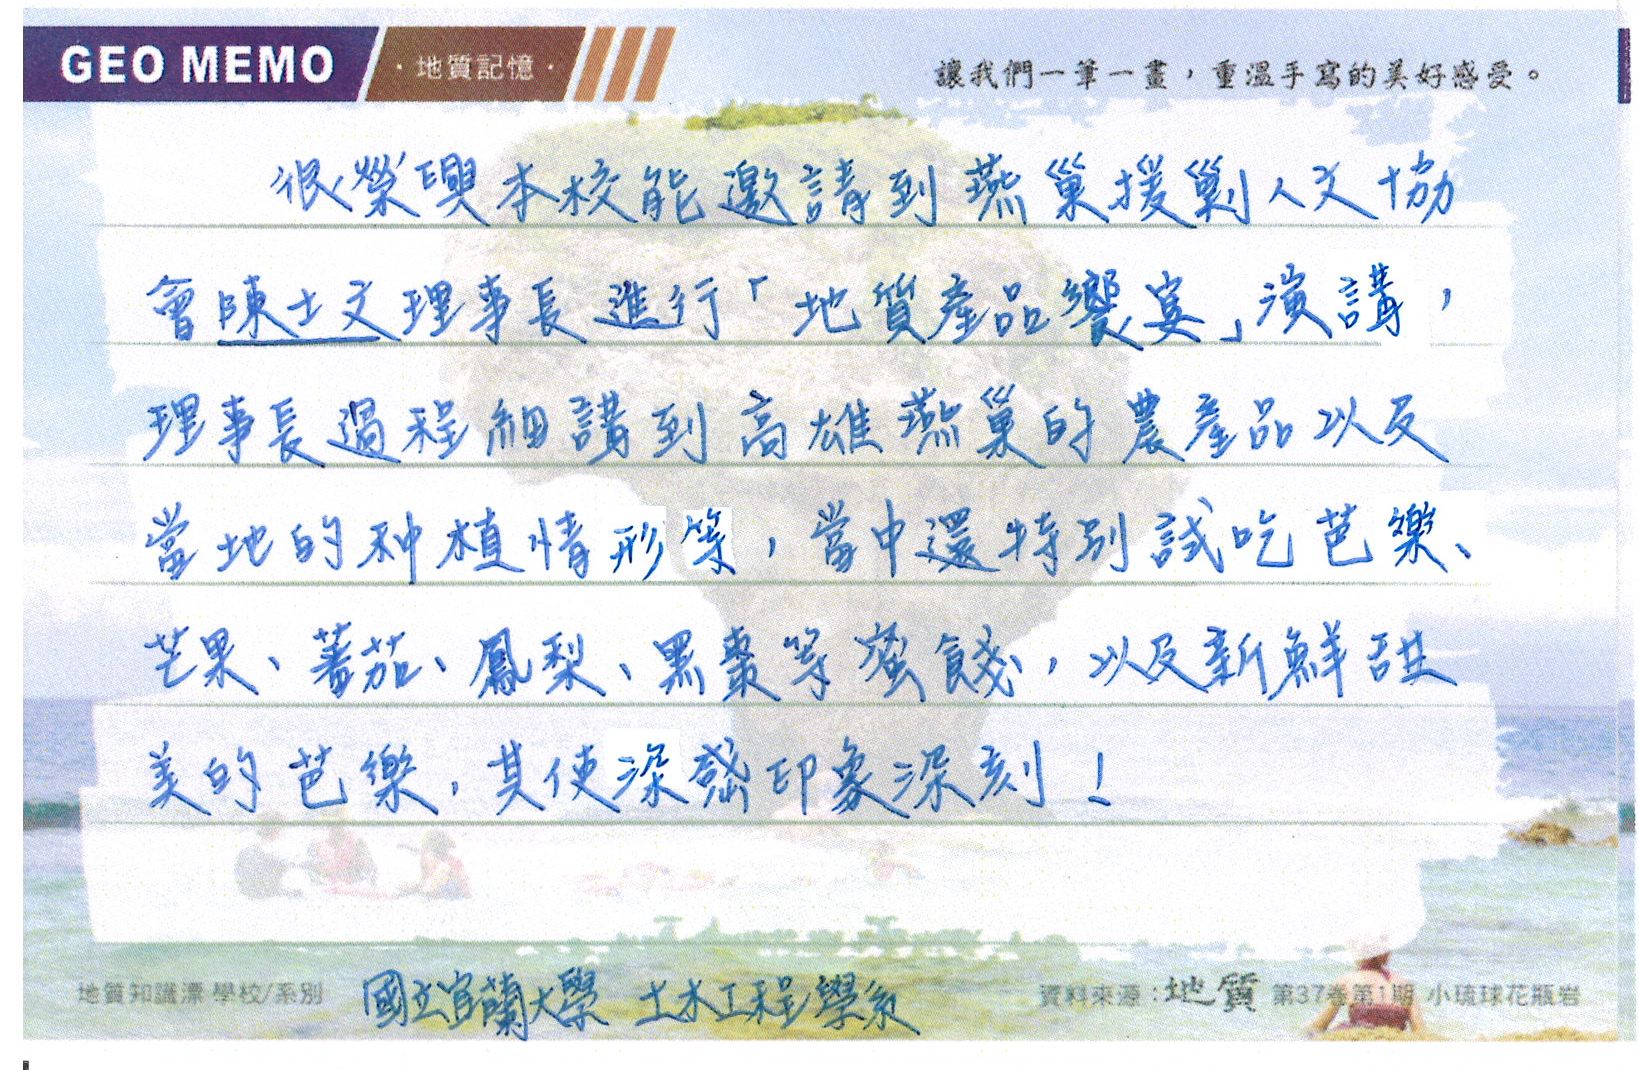 GEO MEMO ·地質記憶· 讓我們一筆一畫，重溫手寫的美好感受。
很榮興本校能邀請到燕巢援剿人文協
會陳士文理事長進行「地質產品饗宴」演講，
理事長過程細講到高雄燕巢的農產品以及
當地的种植情形等，當中還特別試吃芭樂、
芒果、蕃茄、鳳梨、黑棗等蜜餞，以及新鮮甜
美的芭樂，其使深感印象深刻！
地質知識漂 學校/系別 國立宜蘭大學 土木工程學系 資料來源：地質 第37卷第1期 小琉球花瓶岩